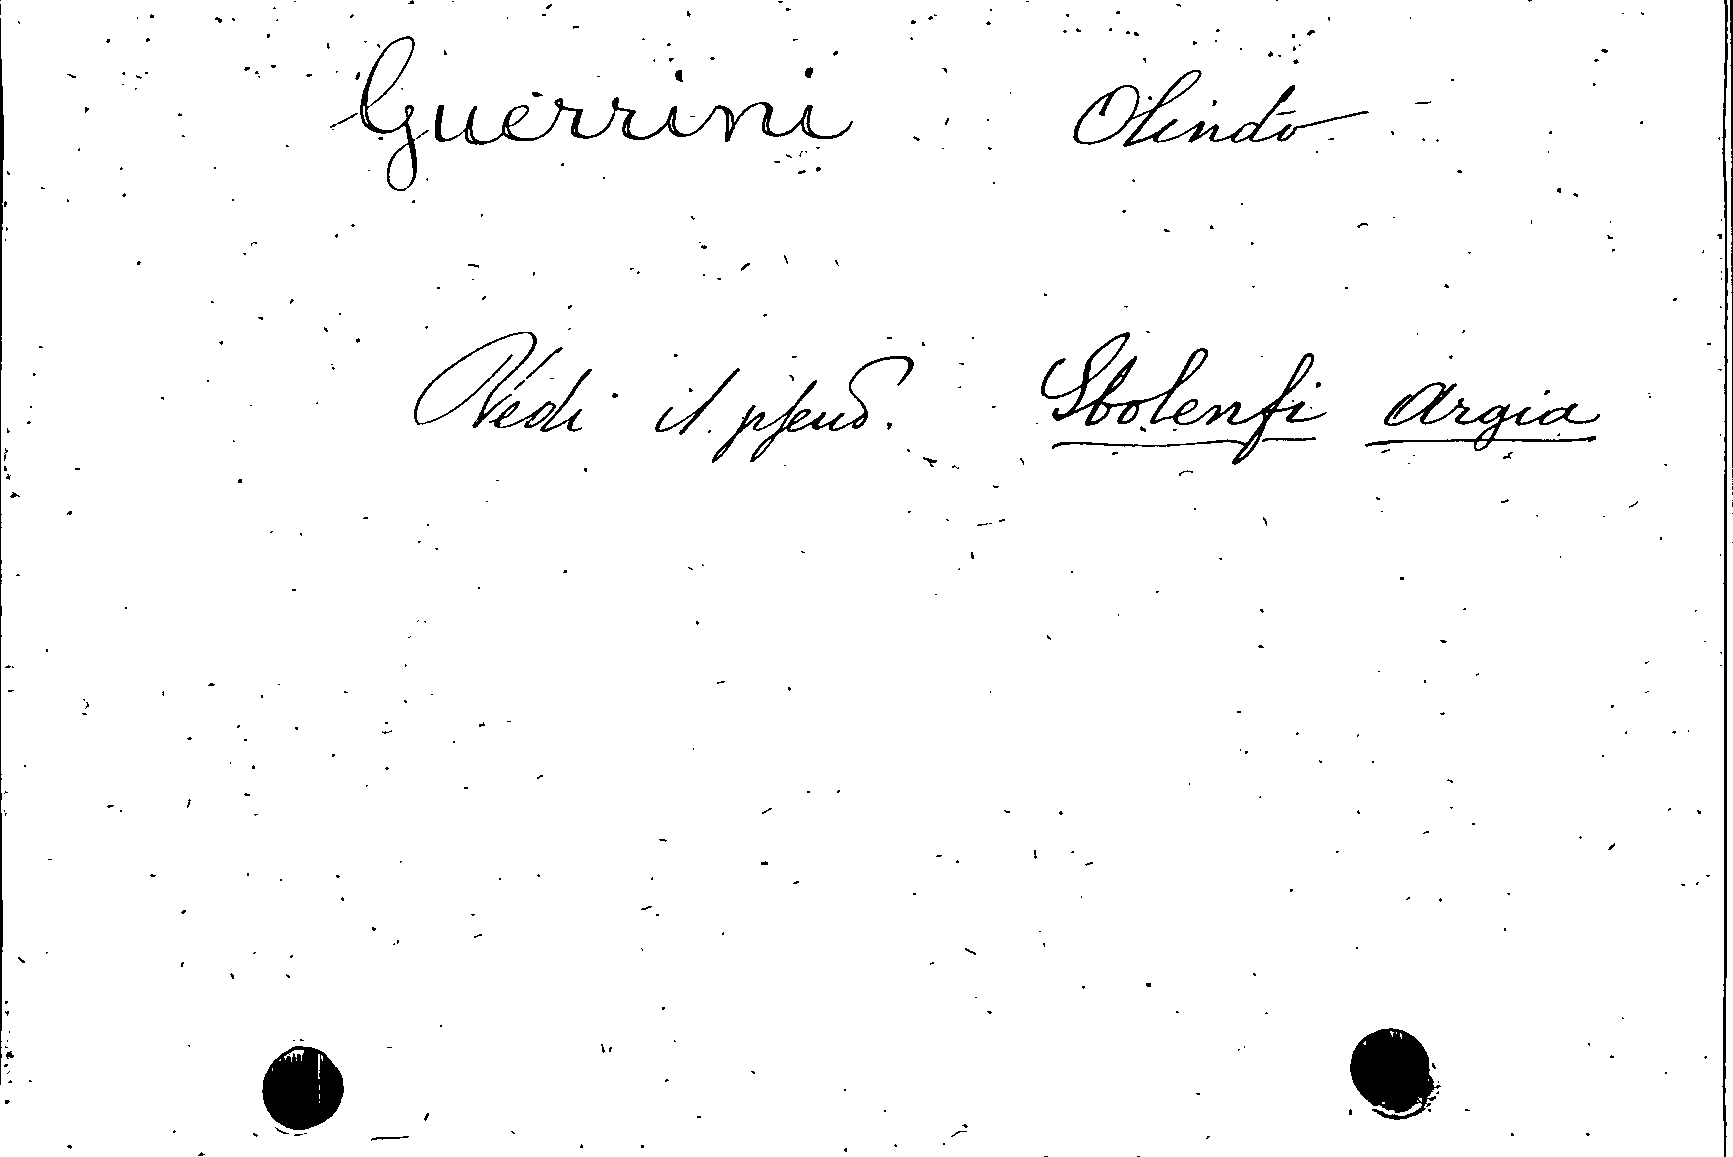 Guerrini Olindo
Vedi il pseud. Sbolenfi Argia